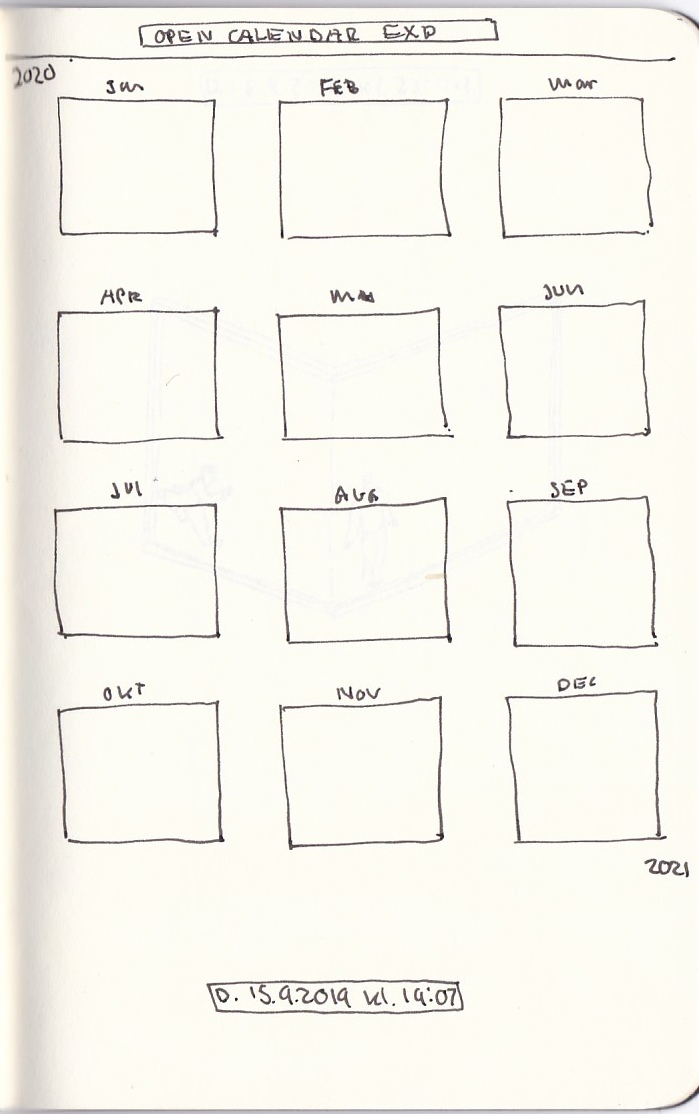 OPEN CALENDAR EXP
2020
Jan FEB Mar
APR MAJ JUN
JUL AUG SEP
OKT NOV DEC
2021
D. 15.9.2019 kl. 19:07